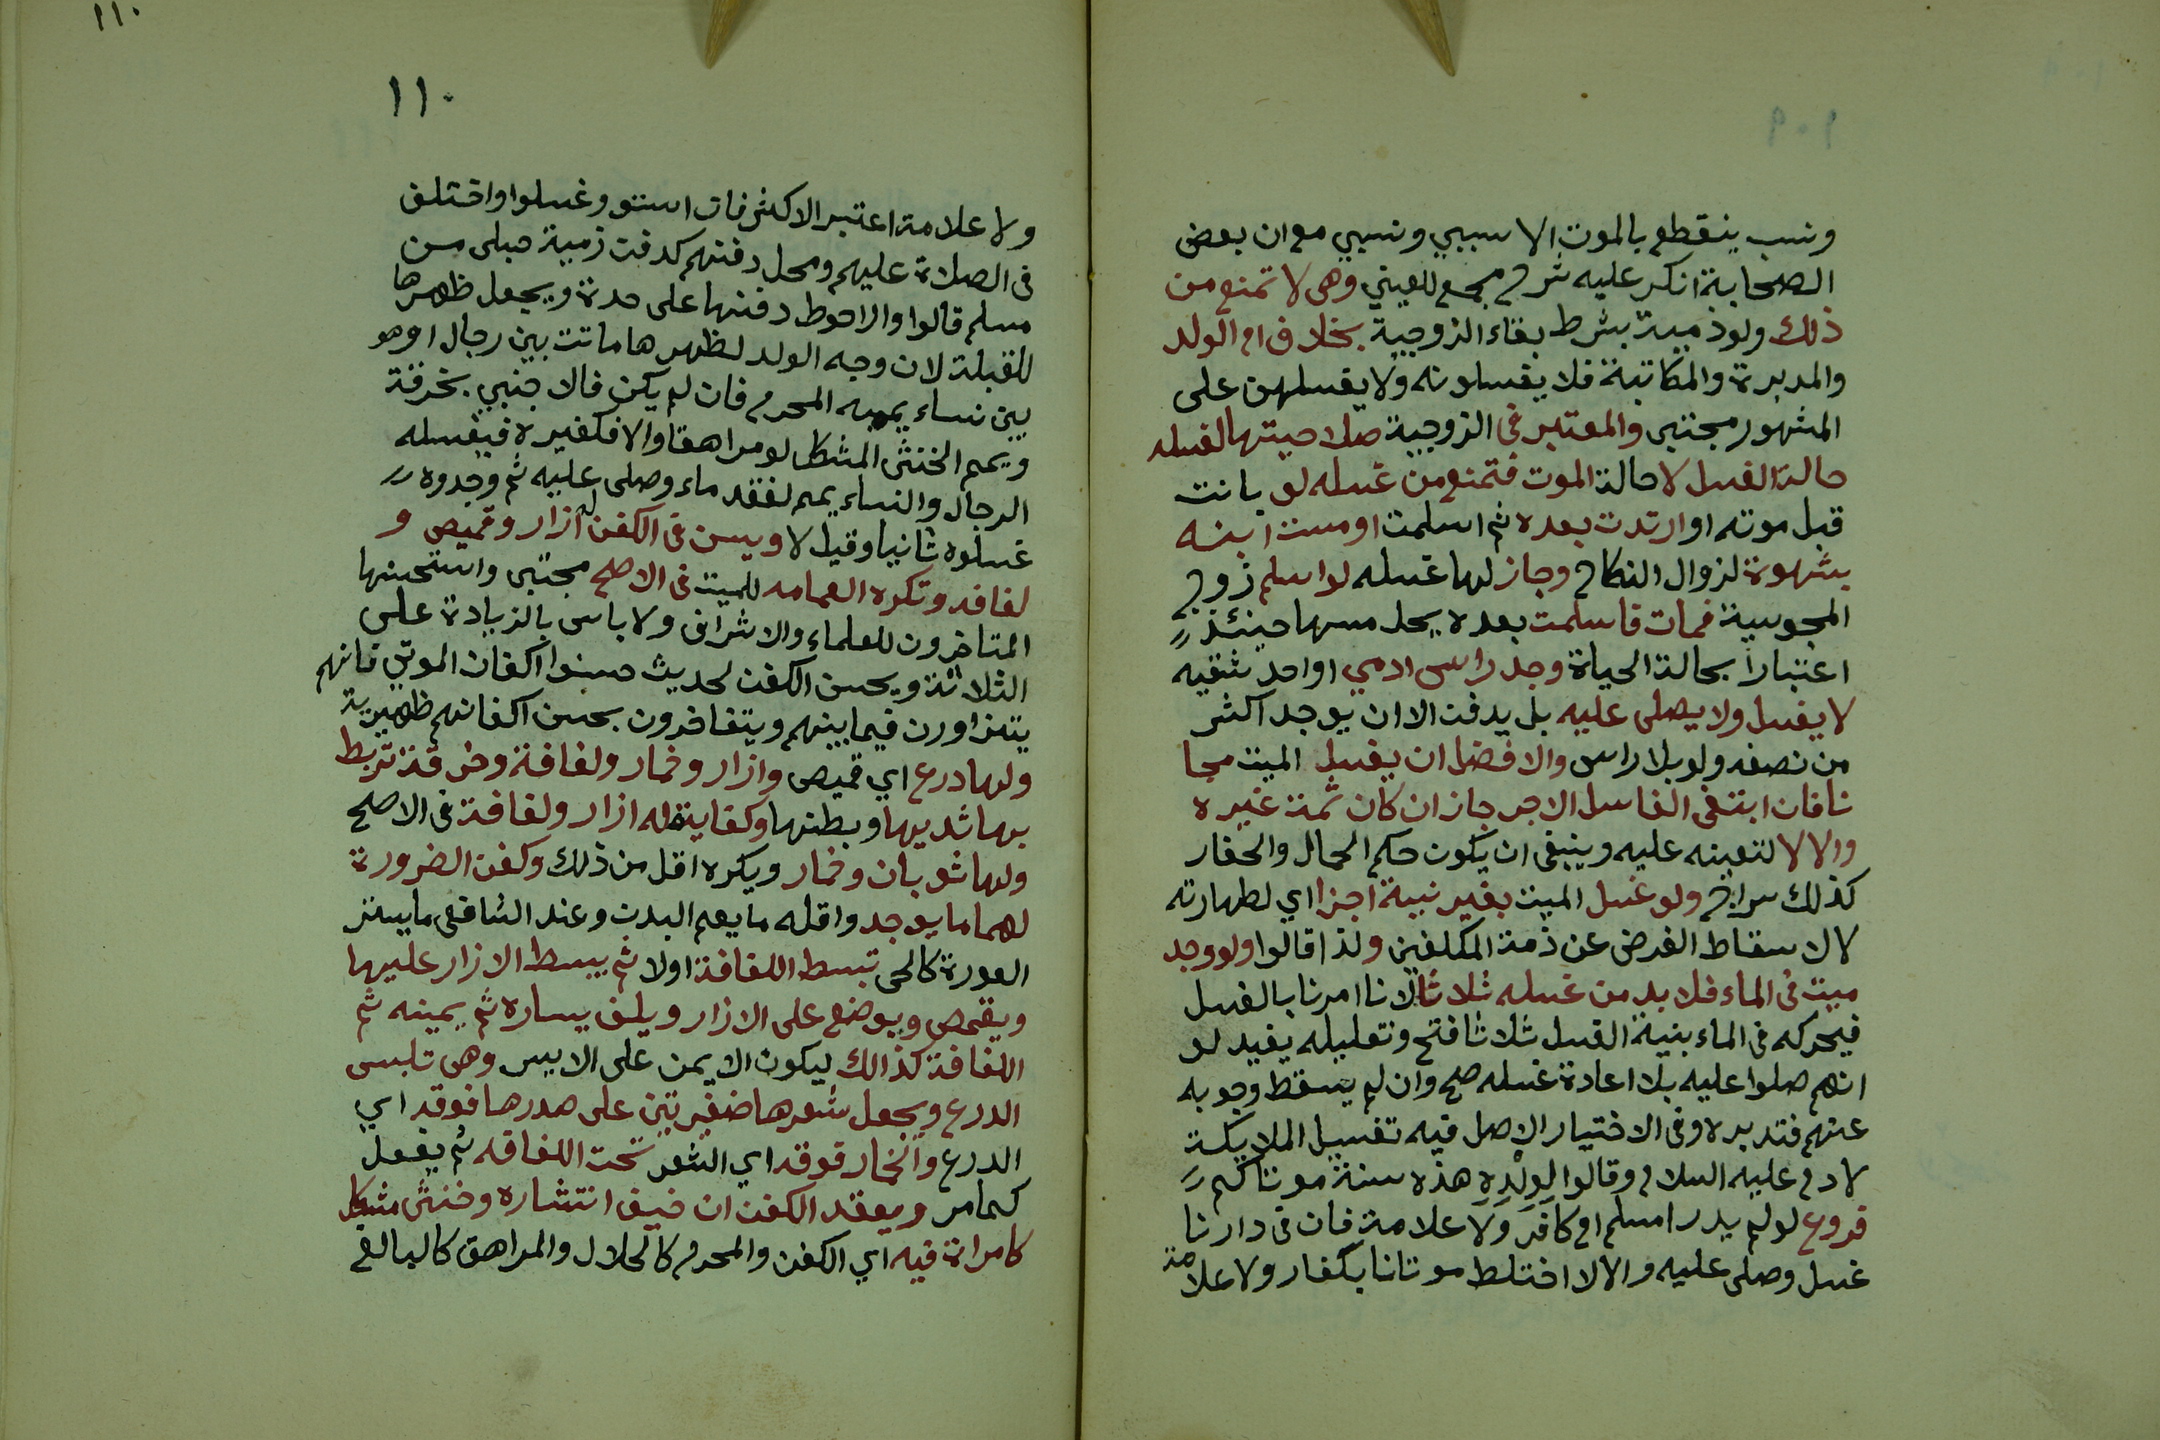 ونسب ينقطع بالموت الا سببي ونسبي مع ان بعض
الصحابة انكر عليه شرح مجمع للعيني وهى لا تمنع من
ذلك ولو ذمية بشرط بقاء الزوجية بخلاف ام الولد
والمدبرة والمكاتبة فلا يغسلونه ولا يغسلهن على
المشهور مجتبى والمعتبر فى الزوجية صلاحيتها لغسله
حالة الغسل لا حالة الموت فتمنع من غسله لو بانت
قبل موته او ارتدت بعده ثم اسلمت او مست ابنه
بشهوة لزوال النكاح وجاز لها غسله لو اسلم زوج
المجوسية فمات فاسلمت بعده لا يحل مسها حينئذ
اعتبارا بحالة الحياة وجد راس ادمي او احد شقيه
لا يغسل ولا يصلى عليه بل يدفن الا ان يوجد اكثر
من نصفه ولو بلا راس والافضل ان يغسل الميت مجا
نا فان ابتغى الغاسل الاجر جاز ان كان ثمة غيره
والا لا لتعينه عليه وينبغى ان يكون حكم الحمال والحفار
كذلك سراج ولو غسل الميت بغير نية اجزا اي لطهارته
لا لاسقاط الفرض عن ذمة المكلفين ولذا قالوا ولو وجد
ميت فى الماء فلا بد من غسله ثلاثا لانا امرنا بالغسل
فيحركه فى الماء بنية الغسل ثلاثا فتح وتعليله يفيد لو
انهم صلوا عليه بلا اعادة غسله صح وان لم يسقط وجوبه
عنهم فتدبره وفى الاختيار الاصل فيه تغسيل الملايكة
لادم عليه السلام وقالوا لولده هذه سنة موتاكم
فروع لو لم يدر امسلم ام كافر ولا علامة فان فى دارنا
غسل وصلى عليه والا لا اختلط موتانا بكفار ولا علامة
١١٠
١١٠
ولا علامة اعتبر الاكثر فان استوو غسلوا واختلف
فى الصلاة عليهم ومحل دفنهم كدفن ذمية حبلى من
مسلم قالوا والاحوط دفنها على حدة ويجعل ظهرها
للقبلة لان وجه الولد لظهرها ماتت بين رجال او هو
بين نساء يممه المحرم فان لم يكن فالاجنبي بخرقة
ويمم الخنثى المشكل لو مراهقا والا فكغيره فيغسله
الرجال والنساء يمم لفقد ماء وصلى عليه ثم وجدوه
غسلوه ثانيا وقيل لا ويسن فى الكفن له ازار وقميص و
لفافه وتكره العمامه للميت فى الاصح مجتبى واستحسنها
المتاخرون للعلماء والاشراف ولا باس بالزيادة على
الثلاثة ويحسن الكفن لحديث حسنوا اكفان الموتى فانهم
يتزاورن فيما بينهم ويتفاخرون بحسن اكفانهم ظهيرية
ولها درع اي قميص وازار وخمار ولفافة وخرقة تربط
بها ثديها وبطنها وكفاية له ازار ولفافة فى الاصح
ولها ثوبان وخمار ويكره اقل من ذلك وكفن الضرورة
لهما ما يوجد واقله ما يعم البدن وعند الشافعى ما يستر
العورة كالحى تبسط اللفافة اولا ثم يبسط الازار عليها
ويقمص ويوضع على الازار ويلف يساره ثم يمينه ثم
اللفافة كذالك ليكون الايمن على الايسر وهى تلبس
الدرع ويجعل شعرها ضفيرتين على صدرها فوقه اي
الدرع والخمار فوقه اي الشعر تحت اللفافه ثم يفعل
كما مر ويعقد الكفن ان خيف انتشاره وخنثى مشكل
كامراة فيه اي الكفن والمحرم كالحلال والمراهق كالبالغ